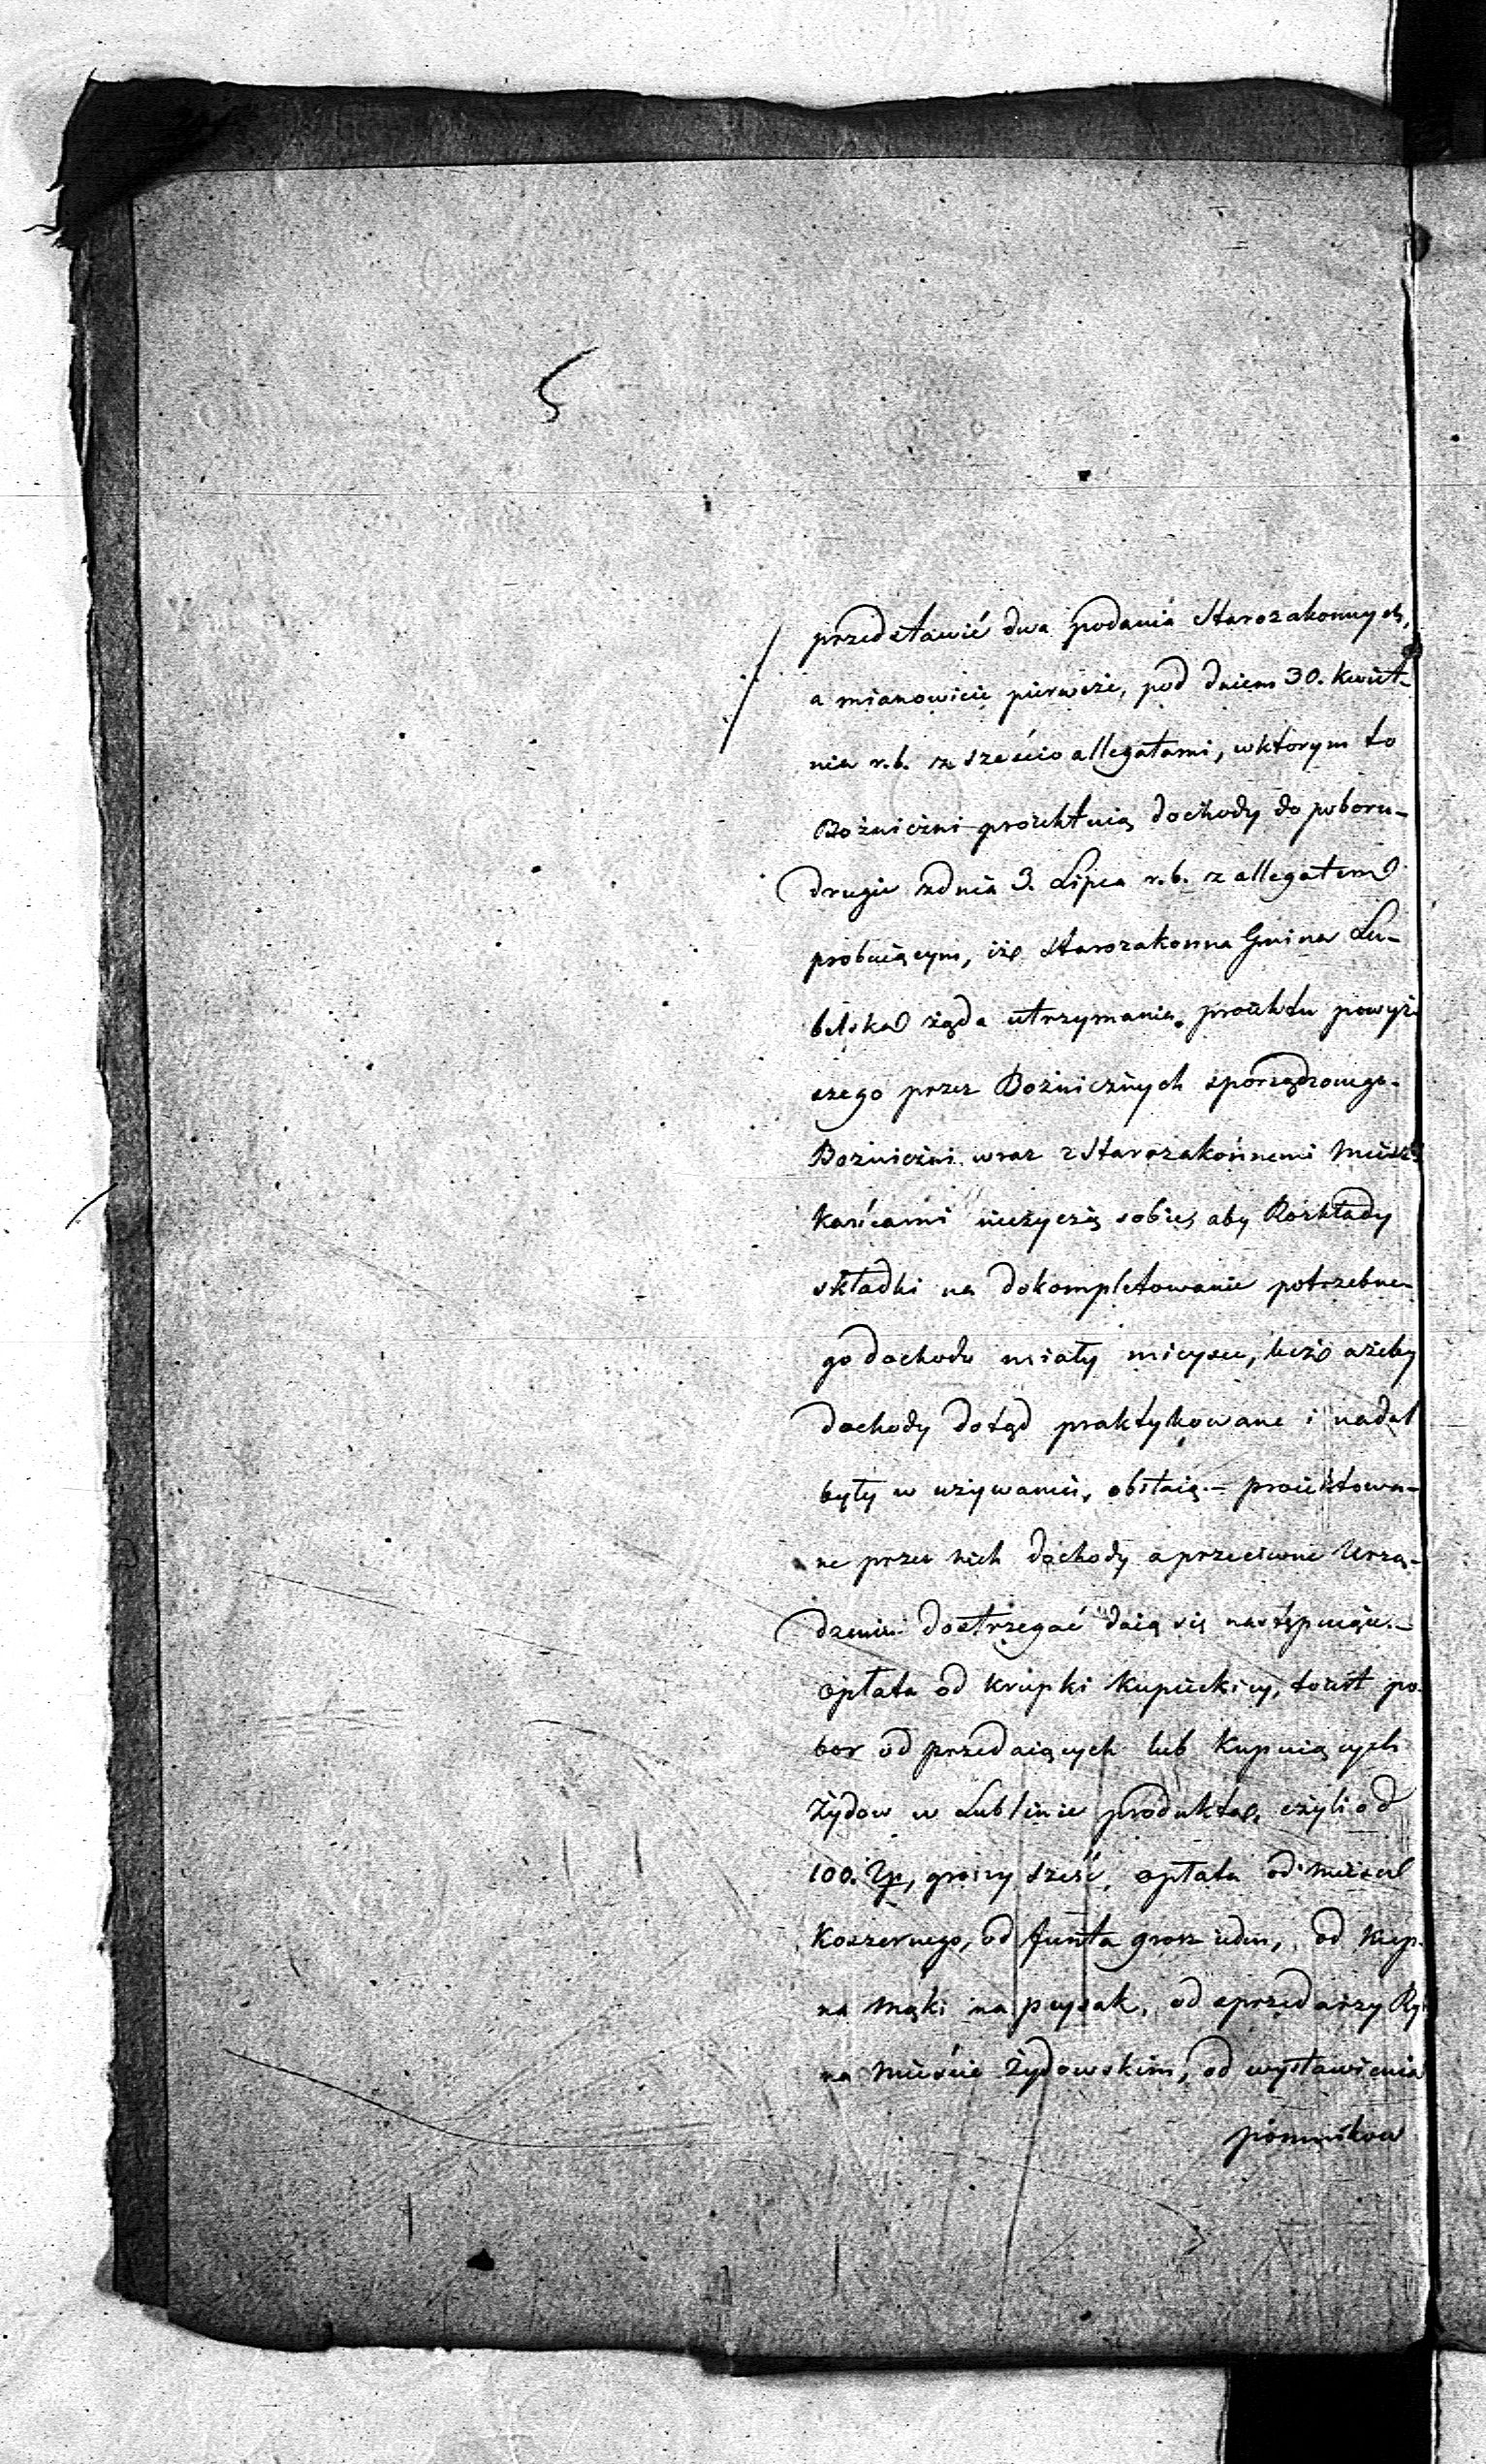 przedstawić dwa podania Starozakonnych,
a mianowicie pierwsze, pod dniem 30. Kwiet-
nia r.b. z sześcio allegatami, w ktorym to
Bożniczni proiektuią dochody do poboru-
drugie z dnia 3. Lipca r.b. z allegatem
probuiącym, iż Starozakonna Gmina Lu-
belska żąda utrzymania proiektu powyż-
szego przez Bożnicznych sporządzonego-
Bożniczni wraz z Starozakonnemi Miesz-
kańcami nieżyczą sobie, aby Rozkłady
składki na dokompletowanie potrzebne-
go dochodu miały mieysce, lecz ażeby
dochody dotąd praktykowane i nadal
były w używaniu, obstaią.- proiektowa-
ne przez nich dochody a przeciwne Urzą-
dzeniu dostrzegać daią się następuiące.-
opłata od krupki Kupieckiey, toiest po-
bor od przedaiących lub Kupuiących
Żydow w Lublinie produkta, czyli od
100. Zp, groszy sześć, opłata od Mięsa
Koszernego, od funta grosz ieden, od Kup-
na Mąki na peysak, od sprzedaży Ry
na Mieście Żydowskim, od wystawienia
pómnikow